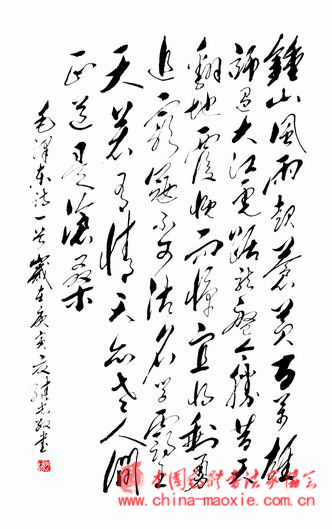 鍾山風雨起蒼黃百萬雄
師過大江虎踞龍盤今勝昔天
翻地覆慨而慷宜將剩勇
追窮寇不可沽名學霸王
天若有情天亦老人間
正道是滄桑
毛澤東詩一首歲在庚寅夏敬書
中国毛体书法家协会
www.china-maoxie.com.cn